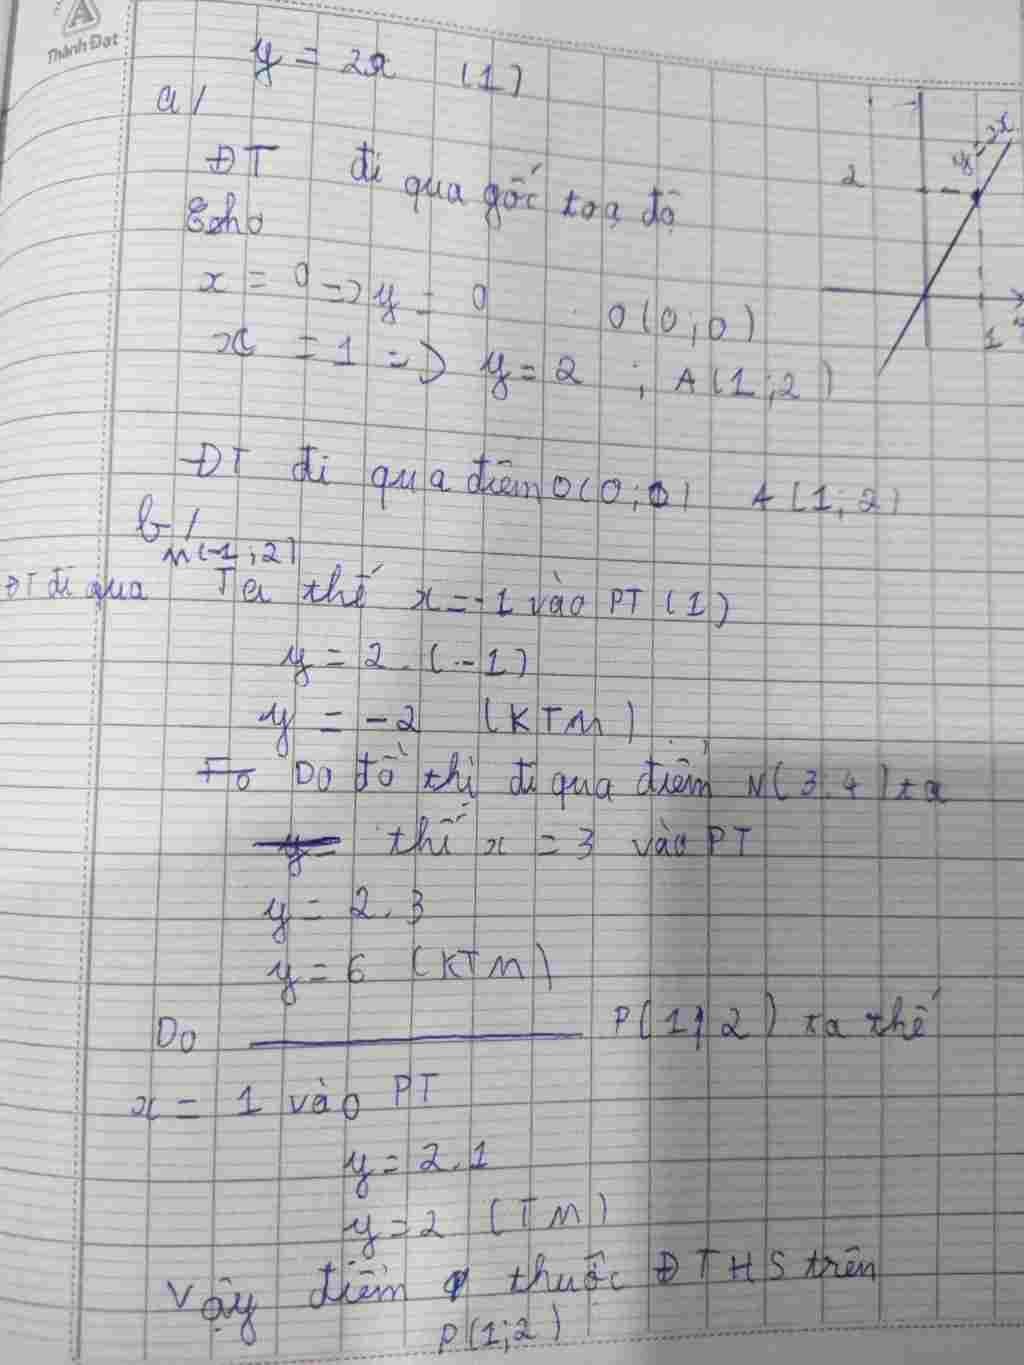 Thành Đạt
y = 2x (1)
a/
ĐT đi qua gốc toạ độ
Cho
x = 0 => y = 0 O(0;0)
x = 1 => y = 2 ; A(1;2)
2
y=2x
1
x
ĐT đi qua điểm O(0;0) A(1;2)
b/
M(-1;2)
ĐT đi qua Ta thế x = -1 vào PT (1)
y = 2.(-1)
y = -2 (KTM)
Do đồ thị đi qua điểm N(3;4) ta
y= thế x = 3 vào PT
y = 2.3
y = 6 (KTM)
Do P(1;2) ta thế
x = 1 vào PT
y = 2.1
y = 2 (TM)
Vậy điểm thuộc ĐTHS trên
P(1;2)